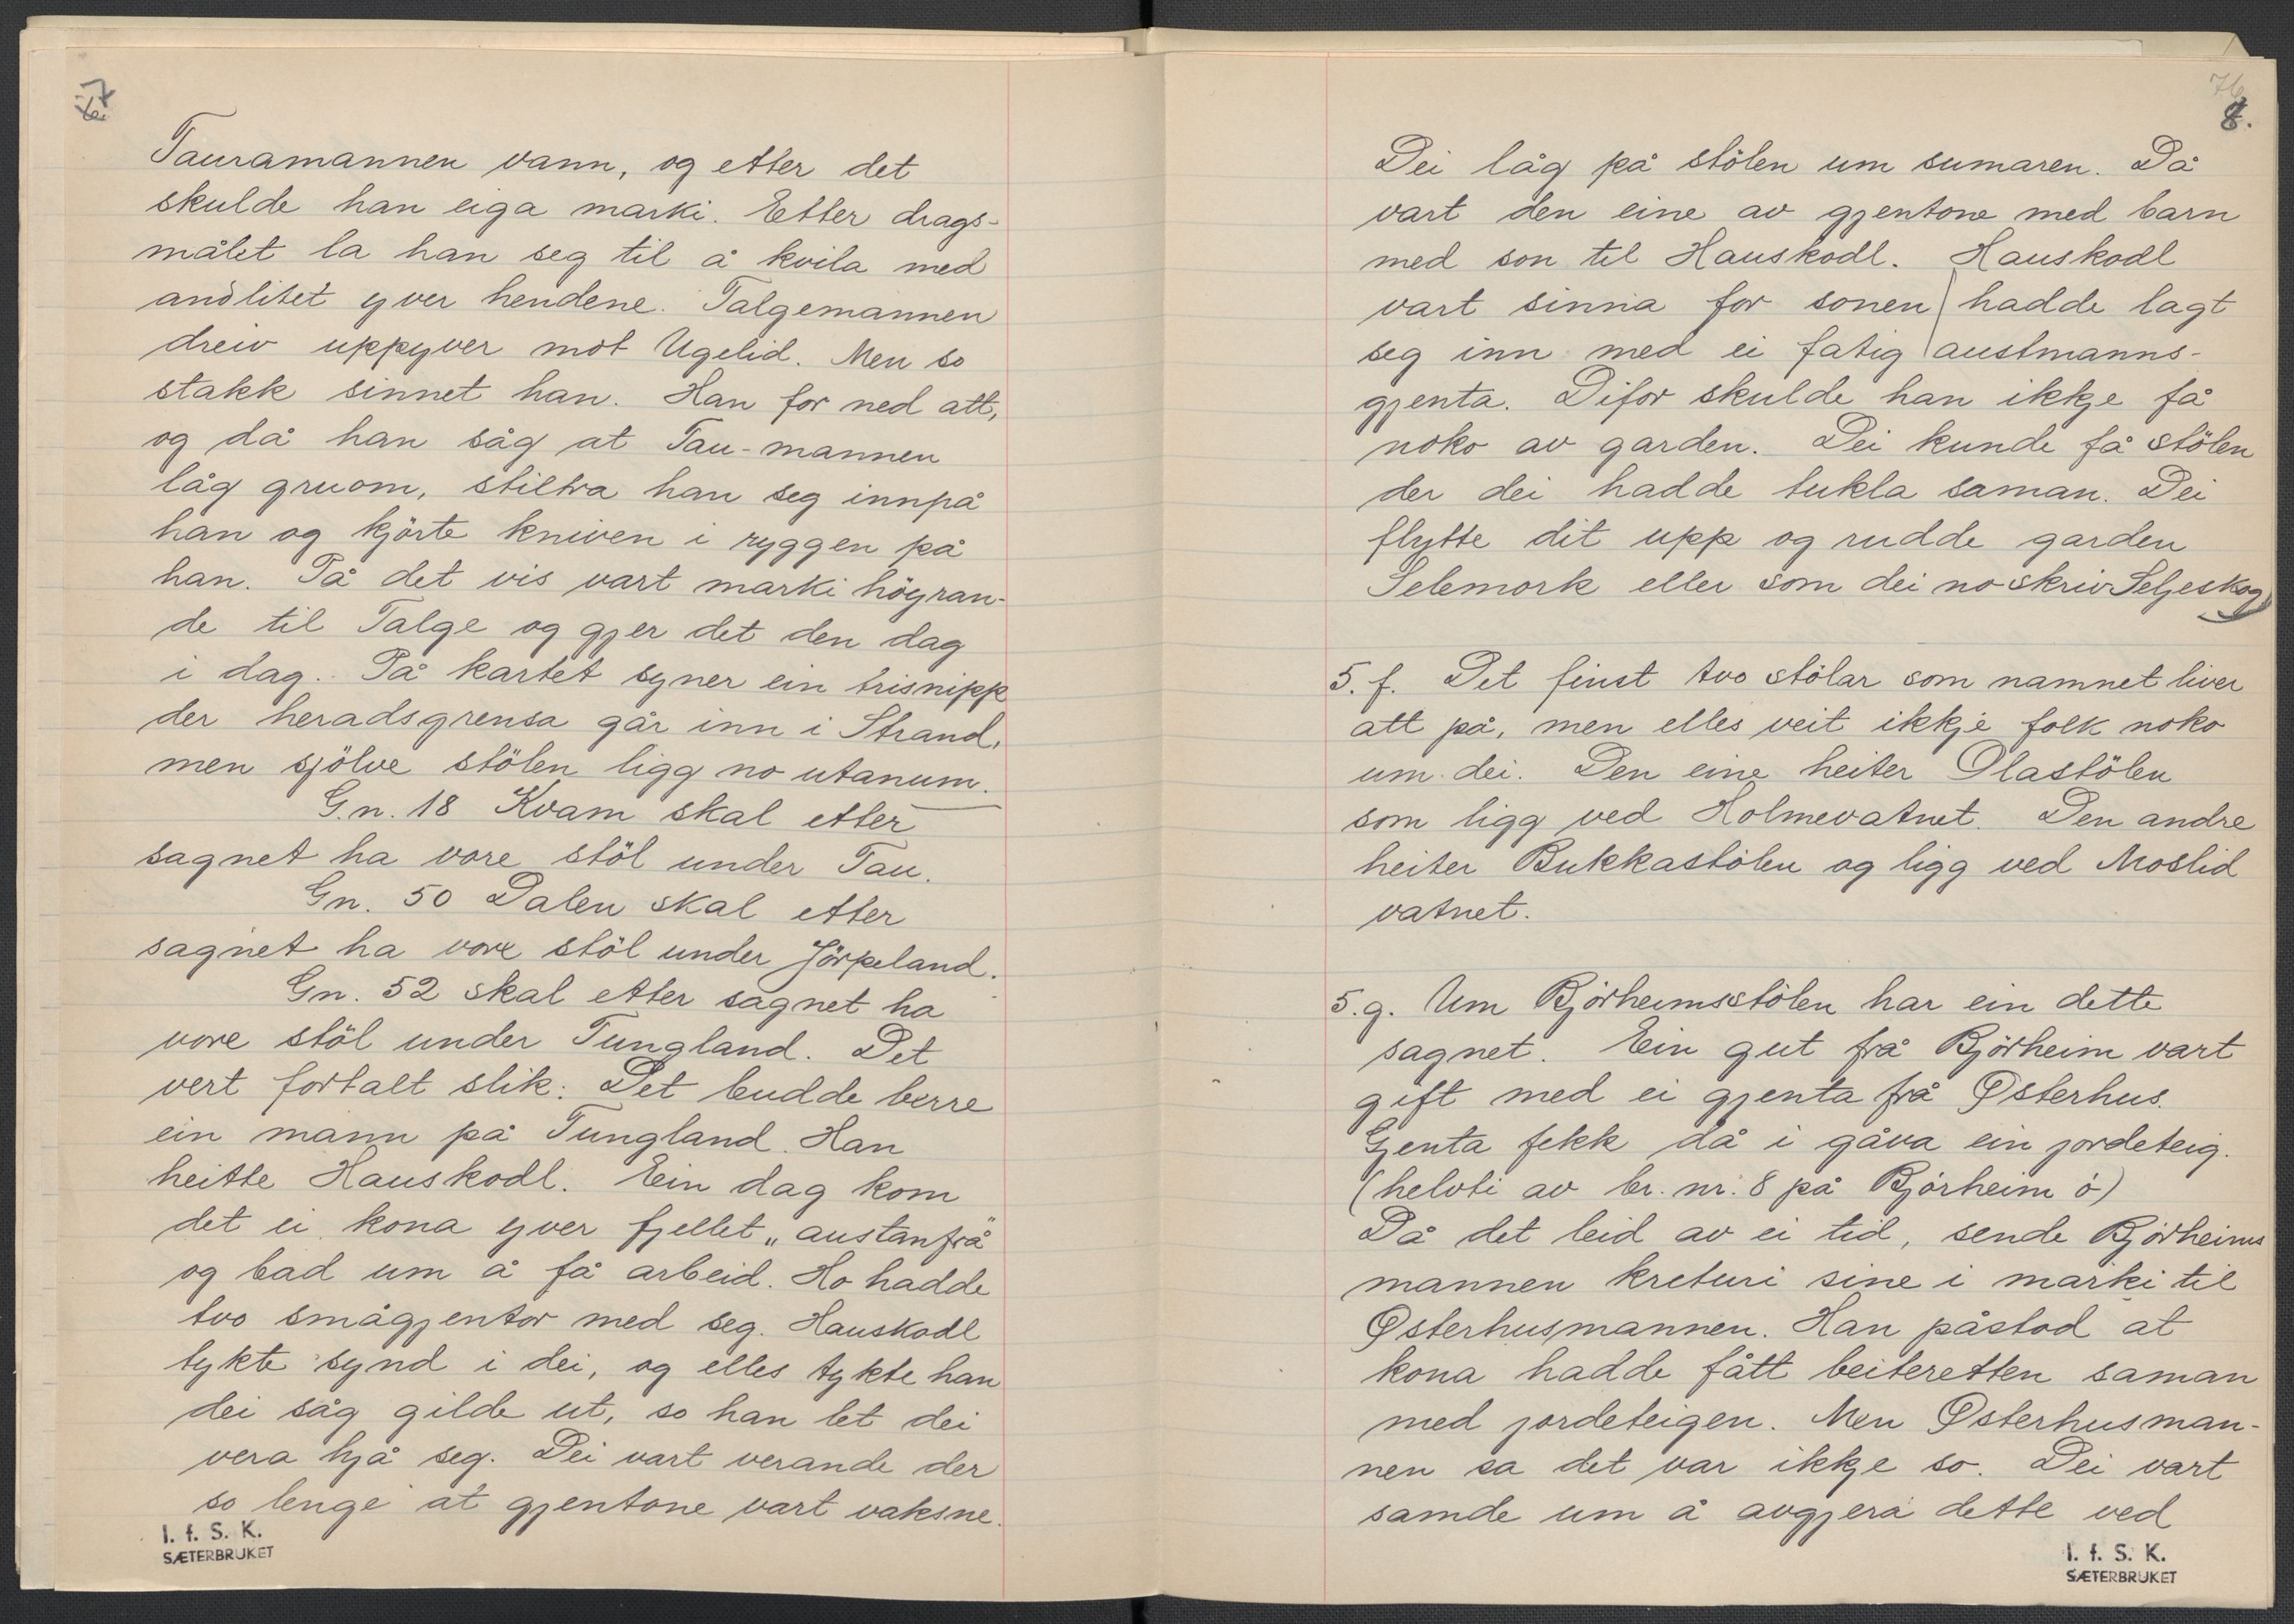 7
Tauramannen vann, og etter det
skulde han eiga marki. Etter drags-
målet la han seg til å kvila med
andlitet yver hendene. Talgemannen
dreiv uppyver mot Ugelid. Men so
stakk sinnet han. Han for ned att,
og då han såg at Tau-mannen
låg gruom, stiltra han seg innpå
han og kjörte kniven i ryggen på
han. På det vis vart marki höyran-
de til Talge og gjer det den dag
i dag. På kartet syner ein trisnipp
der heradsgrensa går inn i Strand,
men sjölve stölen ligg no utanum.
G.n. 18 Kvam skal etter
sagnet ha vore stöl under Tau.
Gn. 50 Dalen skal etter
sagnet ha vore stöl under Jörpeland.
Gn. 52 skal etter sagnet ha
vore stöl under Tungland. Det
vert fortalt slik: Det budde berre
ein mann på Tungland. Han
heitte Hauskodl. Ein dag kom
det ei kona yver fjellet „austanfrå"
og bad um å få arbeid. Ho hadde
tvo smågjentor med seg. Hauskodl
tykte synd i dei, og elles tykte han
dei såg gilde ut, so han let dei
vera hjå seg. Dei vart verande der
so lenge at gjentone vart vaksne.
I. f. S. K.
SÆTERBRUKET
76
8.
Dei låg på stölen um sumaren. Då
vart den eine av gjentone med barn
med son til Hauskodl. Hauskodl
vart sinna for sonen hadde lagt
seg inn med ei fatig austmanns-
gjenta. Difor skulde han ikkje få
noko av garden. Dei kunde få stölen
der dei hadde tukla saman. Dei
flytte dit upp og rudde garden
Selemork eller som dei no skriv Seljeskog
5.f. Det finst tvo stölar som namnet liver
att på, men elles veit ikkje folk noko
um dei. Den eine heiter Olastölen
som ligg ved Holmevatnet. Den andre
heiter Bukkastölen og ligg ved Moslid
vatnet.
5.g. Um Bjórheimsstölen har ein dette
sagnet. Ein gut frå Bjórheim vart
gift med ei gjenta frå Østerhus.
Gjenta fekk då i gåva ein jordeteig.
(helvti av br. nr. 8 på Bjórheim ö)
Då det leid av ei tid, sende Bjórheims
mannen kreturi sine i marki til
Østerhusmannen. Han påstod at
kona hadde fått beiteretten saman
med jordeteigen. Men Østerhusman-
nen sa det var ikkje so. Dei vart
samde um å avgjera dette ved
I. f. S. K.
SÆTERBRUKET